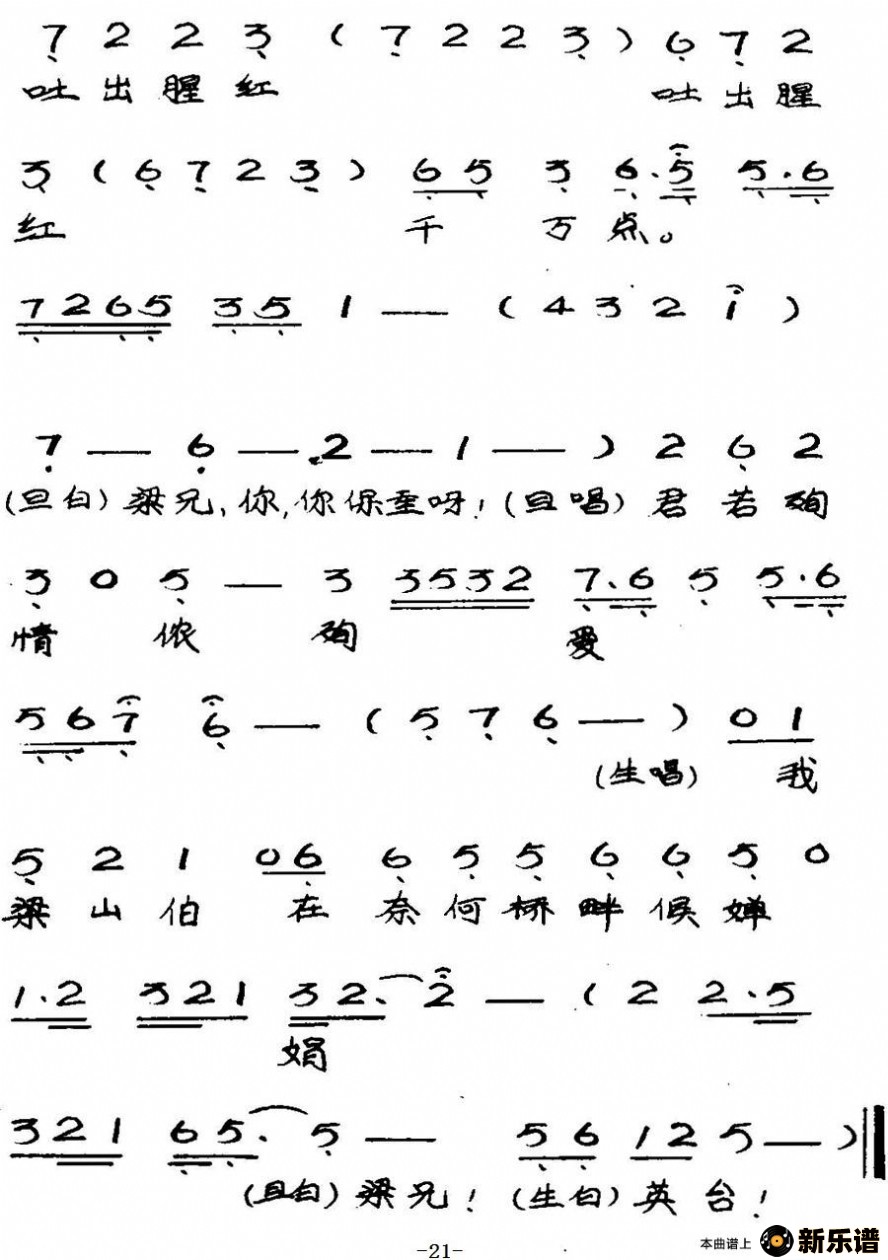 7 2 2 3 ( 7 2 2 3 ) 6 7 2
吐出腥红 吐出腥
3 ( 6 7 2 3 ) 6 5 3 6 . 5 5 . 6
红 千 万 点。
7 2 6 5 3 5 1 — ( 4 3 2 i )
7 — 6 — 2 — 1 — ) 2 6 2
(旦白)梁兄、你,你保重呀!(旦唱)君若殉
3 0 5 — 3 3 5 3 2 7 . 6 5 5 . 6
情 侬 殉 爱
5 6 7 6 — ( 5 7 6 — ) 0 1
(生唱) 我
5 2 1 0 6 6 5 5 6 6 5 0
梁山伯 在奈何桥畔候婵
1 . 2 3 2 1 3 2 . 2 — ( 2 2 . 5
娟
3 2 1 6 5 . 5 — 5 6 1 2 5 — )
(旦白)梁兄!(生白)英台!
-21-
本曲谱上 新乐谱